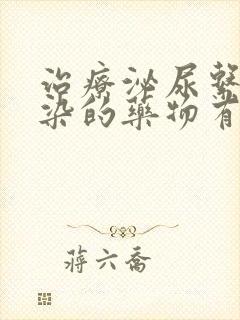 治療泌尿繫
染的藥物有
蔣六喬